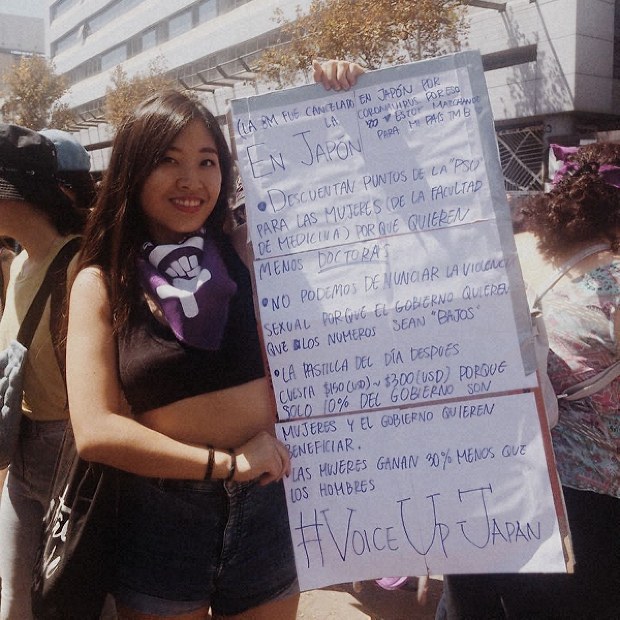 (LA 8M FUE CANCELADA EN JAPÓN POR
LA CORONAVIRUS POR ESO
YO ESTOY MARCHANDO
PARA MI PAÍS TMB)
EN JAPÓN
• DESCUENTAN PUNTOS DE LA "PSU"
PARA LAS MUJERES (DE LA FACULTAD
DE MEDICINA) PORQUE QUIEREN
MENOS DOCTORAS
• NO PODEMOS DENUNCIAR LA VIOLENCIA
SEXUAL PORQUE EL GOBIERNO QUIERE
QUE LOS NUMEROS SEAN "BAJOS"
• LA PASTILLA DEL DÍA DESPUÉS
CUESTA $150(USD) ~ $300(USD) PORQUE
SOLO 10% DEL GOBIERNO SON
MUJERES Y EL GOBIERNO QUIEREN
BENEFICIAR.
• LAS MUJERES GANAN 30% MENOS QUE
LOS HOMBRES
#VOICE UP JAPAN